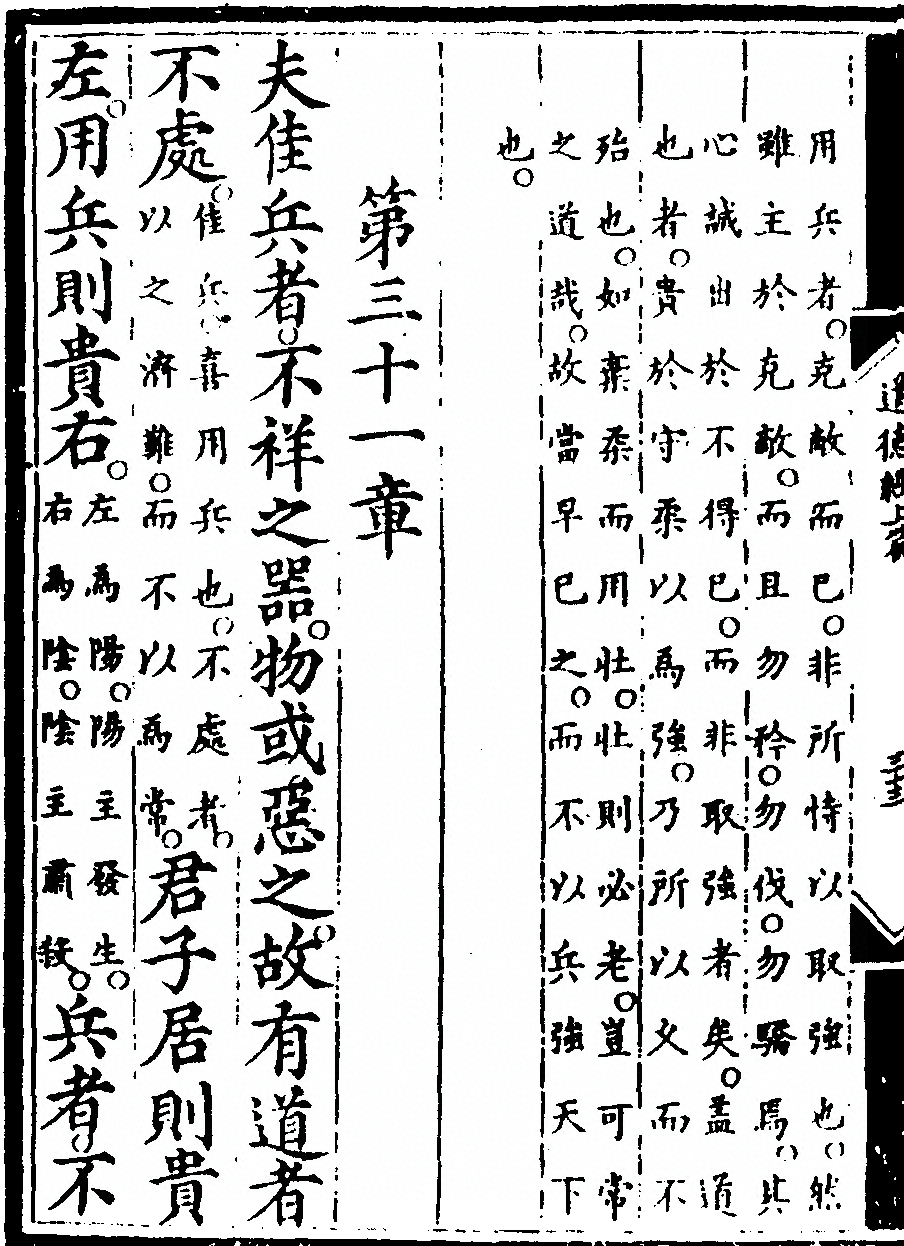 道德經上篇
用兵者。克敵而已。非所恃以取強也。然
雖主於克敵。而且勿矜。勿伐。勿驕焉。其
心誠出於不得已。而非取強者矣。蓋道
也者。貴於守柔以爲強。乃所以久而不
殆也。如棄柔而用壯。壯則必老。豈可常
之道哉。故當早已之。而不以兵強天下
也。
第三十一章
夫佳兵者。不祥之器。物或惡之。故有道者
不處。佳兵。喜用兵也。不處者。以之濟難。而不以爲常。君子居則貴
左。用兵則貴右。左爲陽。陽主發生。右爲陰。陰主肅殺。兵者。不